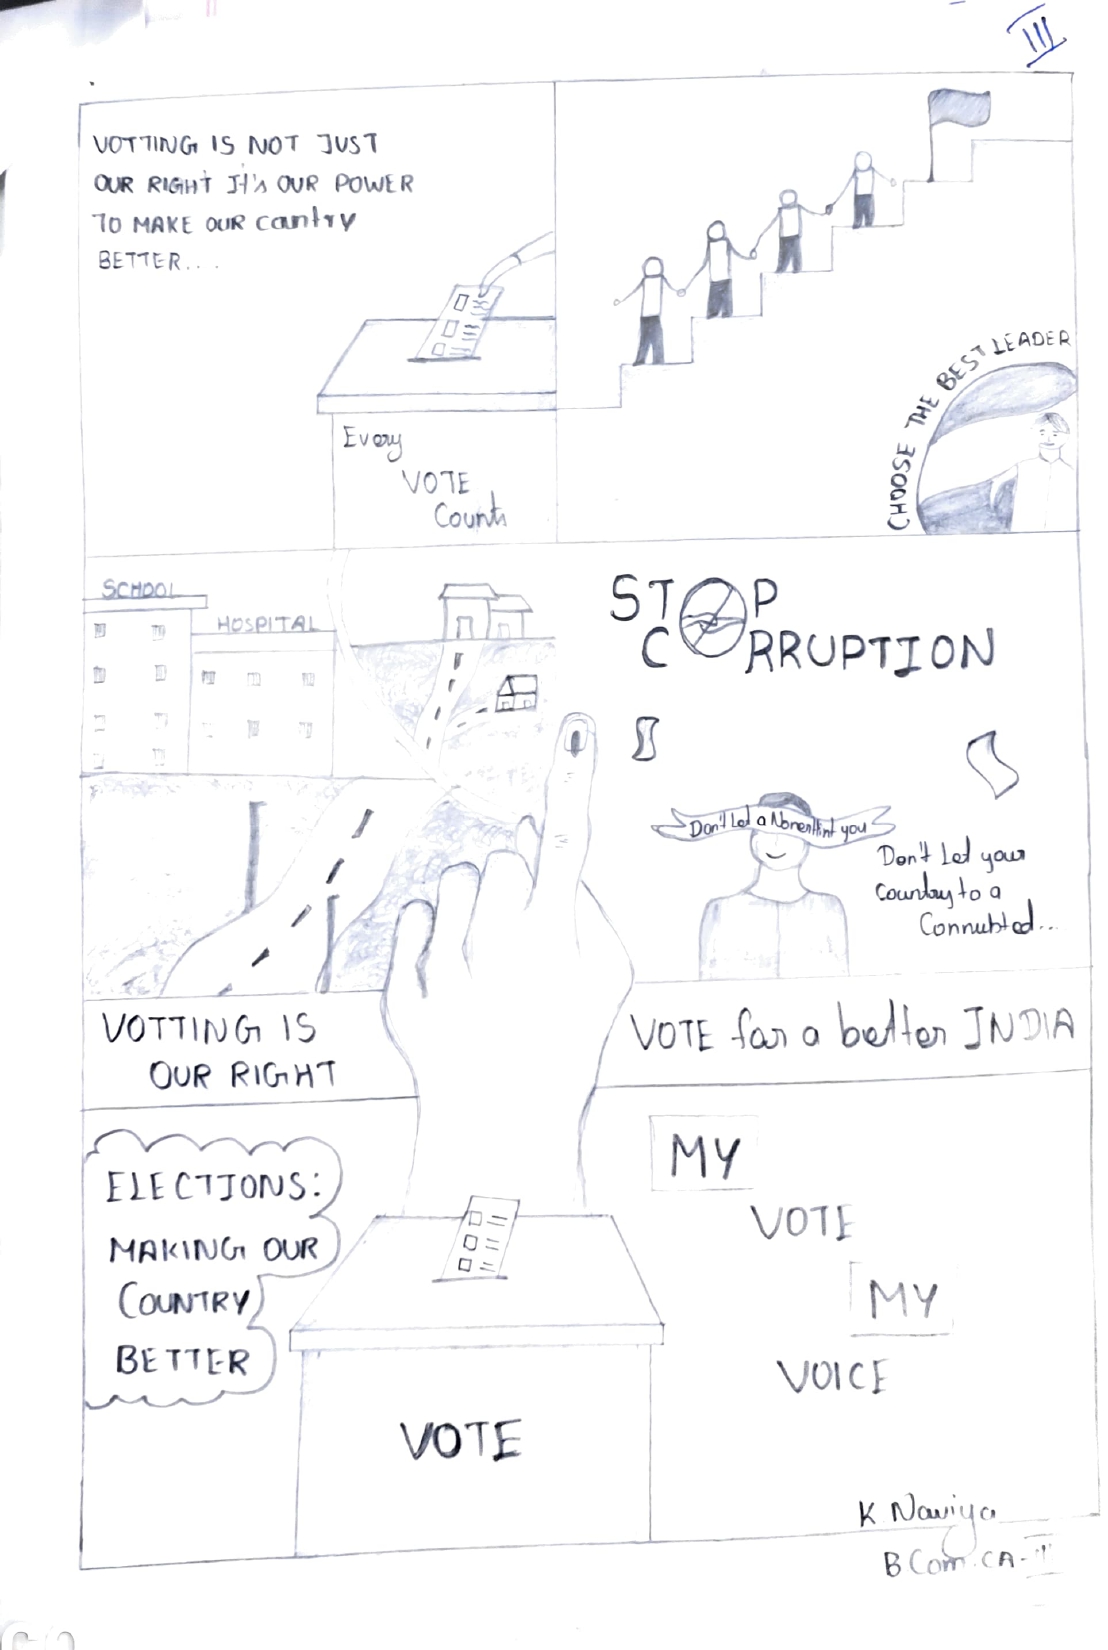 III
VOTTING IS NOT JUST
OUR RIGHT It's OUR POWER
TO MAKE OUR cantry
BETTER....
Every
VOTE
Counts
CHOOSE THE BEST LEADER
SCHOOL
HOSPITAL
STOP
CORRUPTION
Don't Let a
you
Don't Let your
Country to a
VOTTING IS
OUR RIGHT
VOTE for a better INDIA
ELECTIONS:
MAKING OUR
COUNTRY
BETTER
VOTE
MY
VOTE
MY
VOICE
K. Naviya
B.Com.CA-II